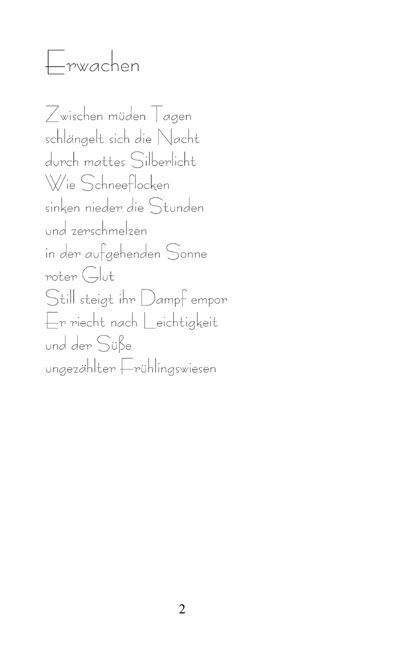 Erwachen
Zwischen müden Tagen
schlängelt sich die Nacht
durch mattes Silberlicht
Wie Schneeflocken
sinken nieder die Stunden
und zerschmelzen
in der aufgehenden Sonne
roter Glut
Still steigt ihr Dampf empor
Er riecht nach Leichtigkeit
und der Süße
ungezählter Frühlingswiesen
2